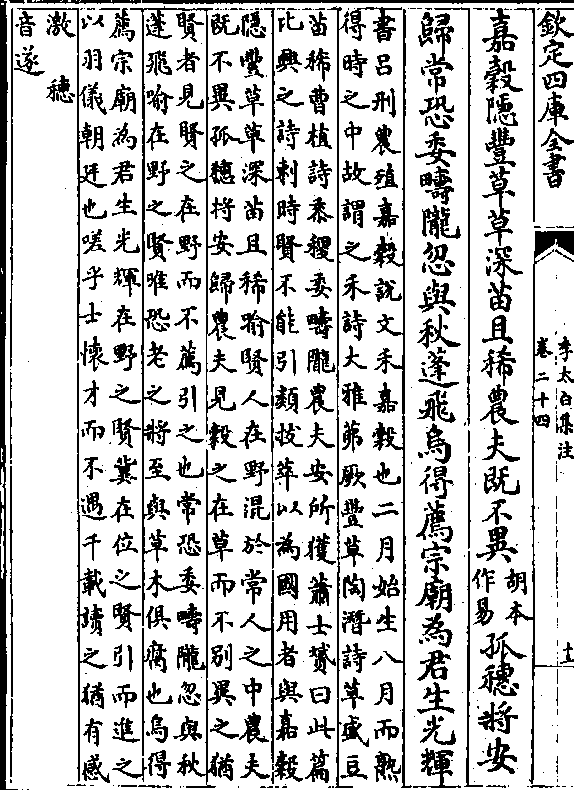 欽定四庫全書
李太白集注
卷二十四
十一
嘉穀隱豐草草深苗且稀農夫既不異胡本作易孤穗將安
歸常恐委疇隴忽與秋蓬飛烏得薦宗廟為君生光輝
書呂刑農殖嘉穀說文禾嘉穀也二月始生八月而熟
得時之中故謂之禾詩大雅茀厥豐草陶潛詩草盛豆
苗稀曹植詩黍稷委疇隴農夫安所獲蕭士贇曰此篇
比興之詩刺時賢不能引類拔萃以為國用者與嘉穀
隱豐草草深苗且稀喻賢人在野混於常人之中農夫
既不異孤穗將安歸農夫見穀之在草而不別異之猶
賢者見賢之在野而不薦引之也常恐委疇隴忽與秋
蓬飛喻在野之賢唯恐老之將至與草木俱腐也烏得
薦宗廟為君生光輝在野之賢冀在位之賢引而進之
以羽儀朝廷也嗟乎士懷才而不遇千載讀之猶有感
激穗
音遂